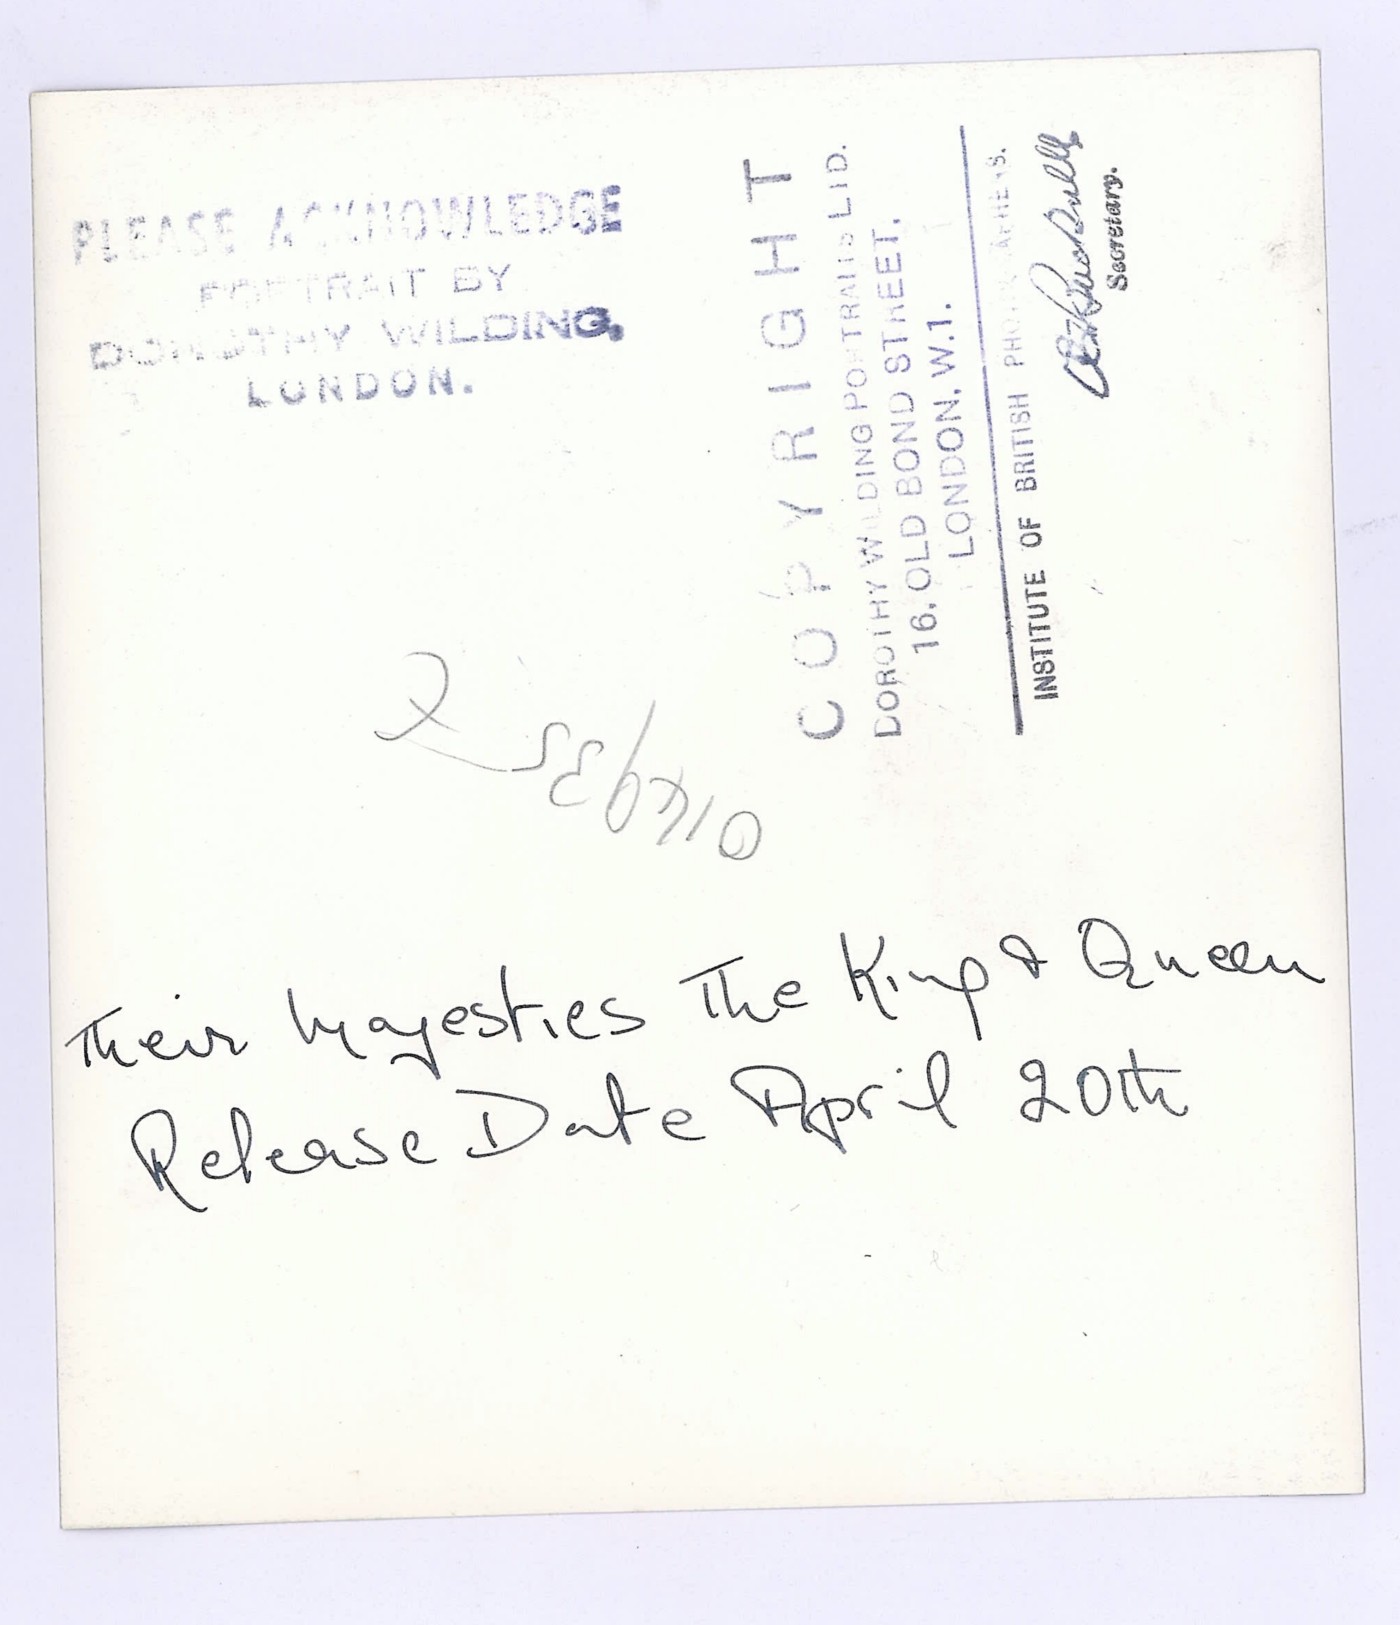 PLEASE ACKNOWLEDGE
PORTRAIT BY
DOROTHY WILDING,
LONDON.
COPYRIGHT
DOROTHY WILDING PORTRAITS LTD.
16, OLD BOND STREET,
LONDON. W.1.
INSTITUTE OF BRITISH PHOTOGRAPHERS.
Secretary.
Their Majesties The King & Queen
Release Date April 20th